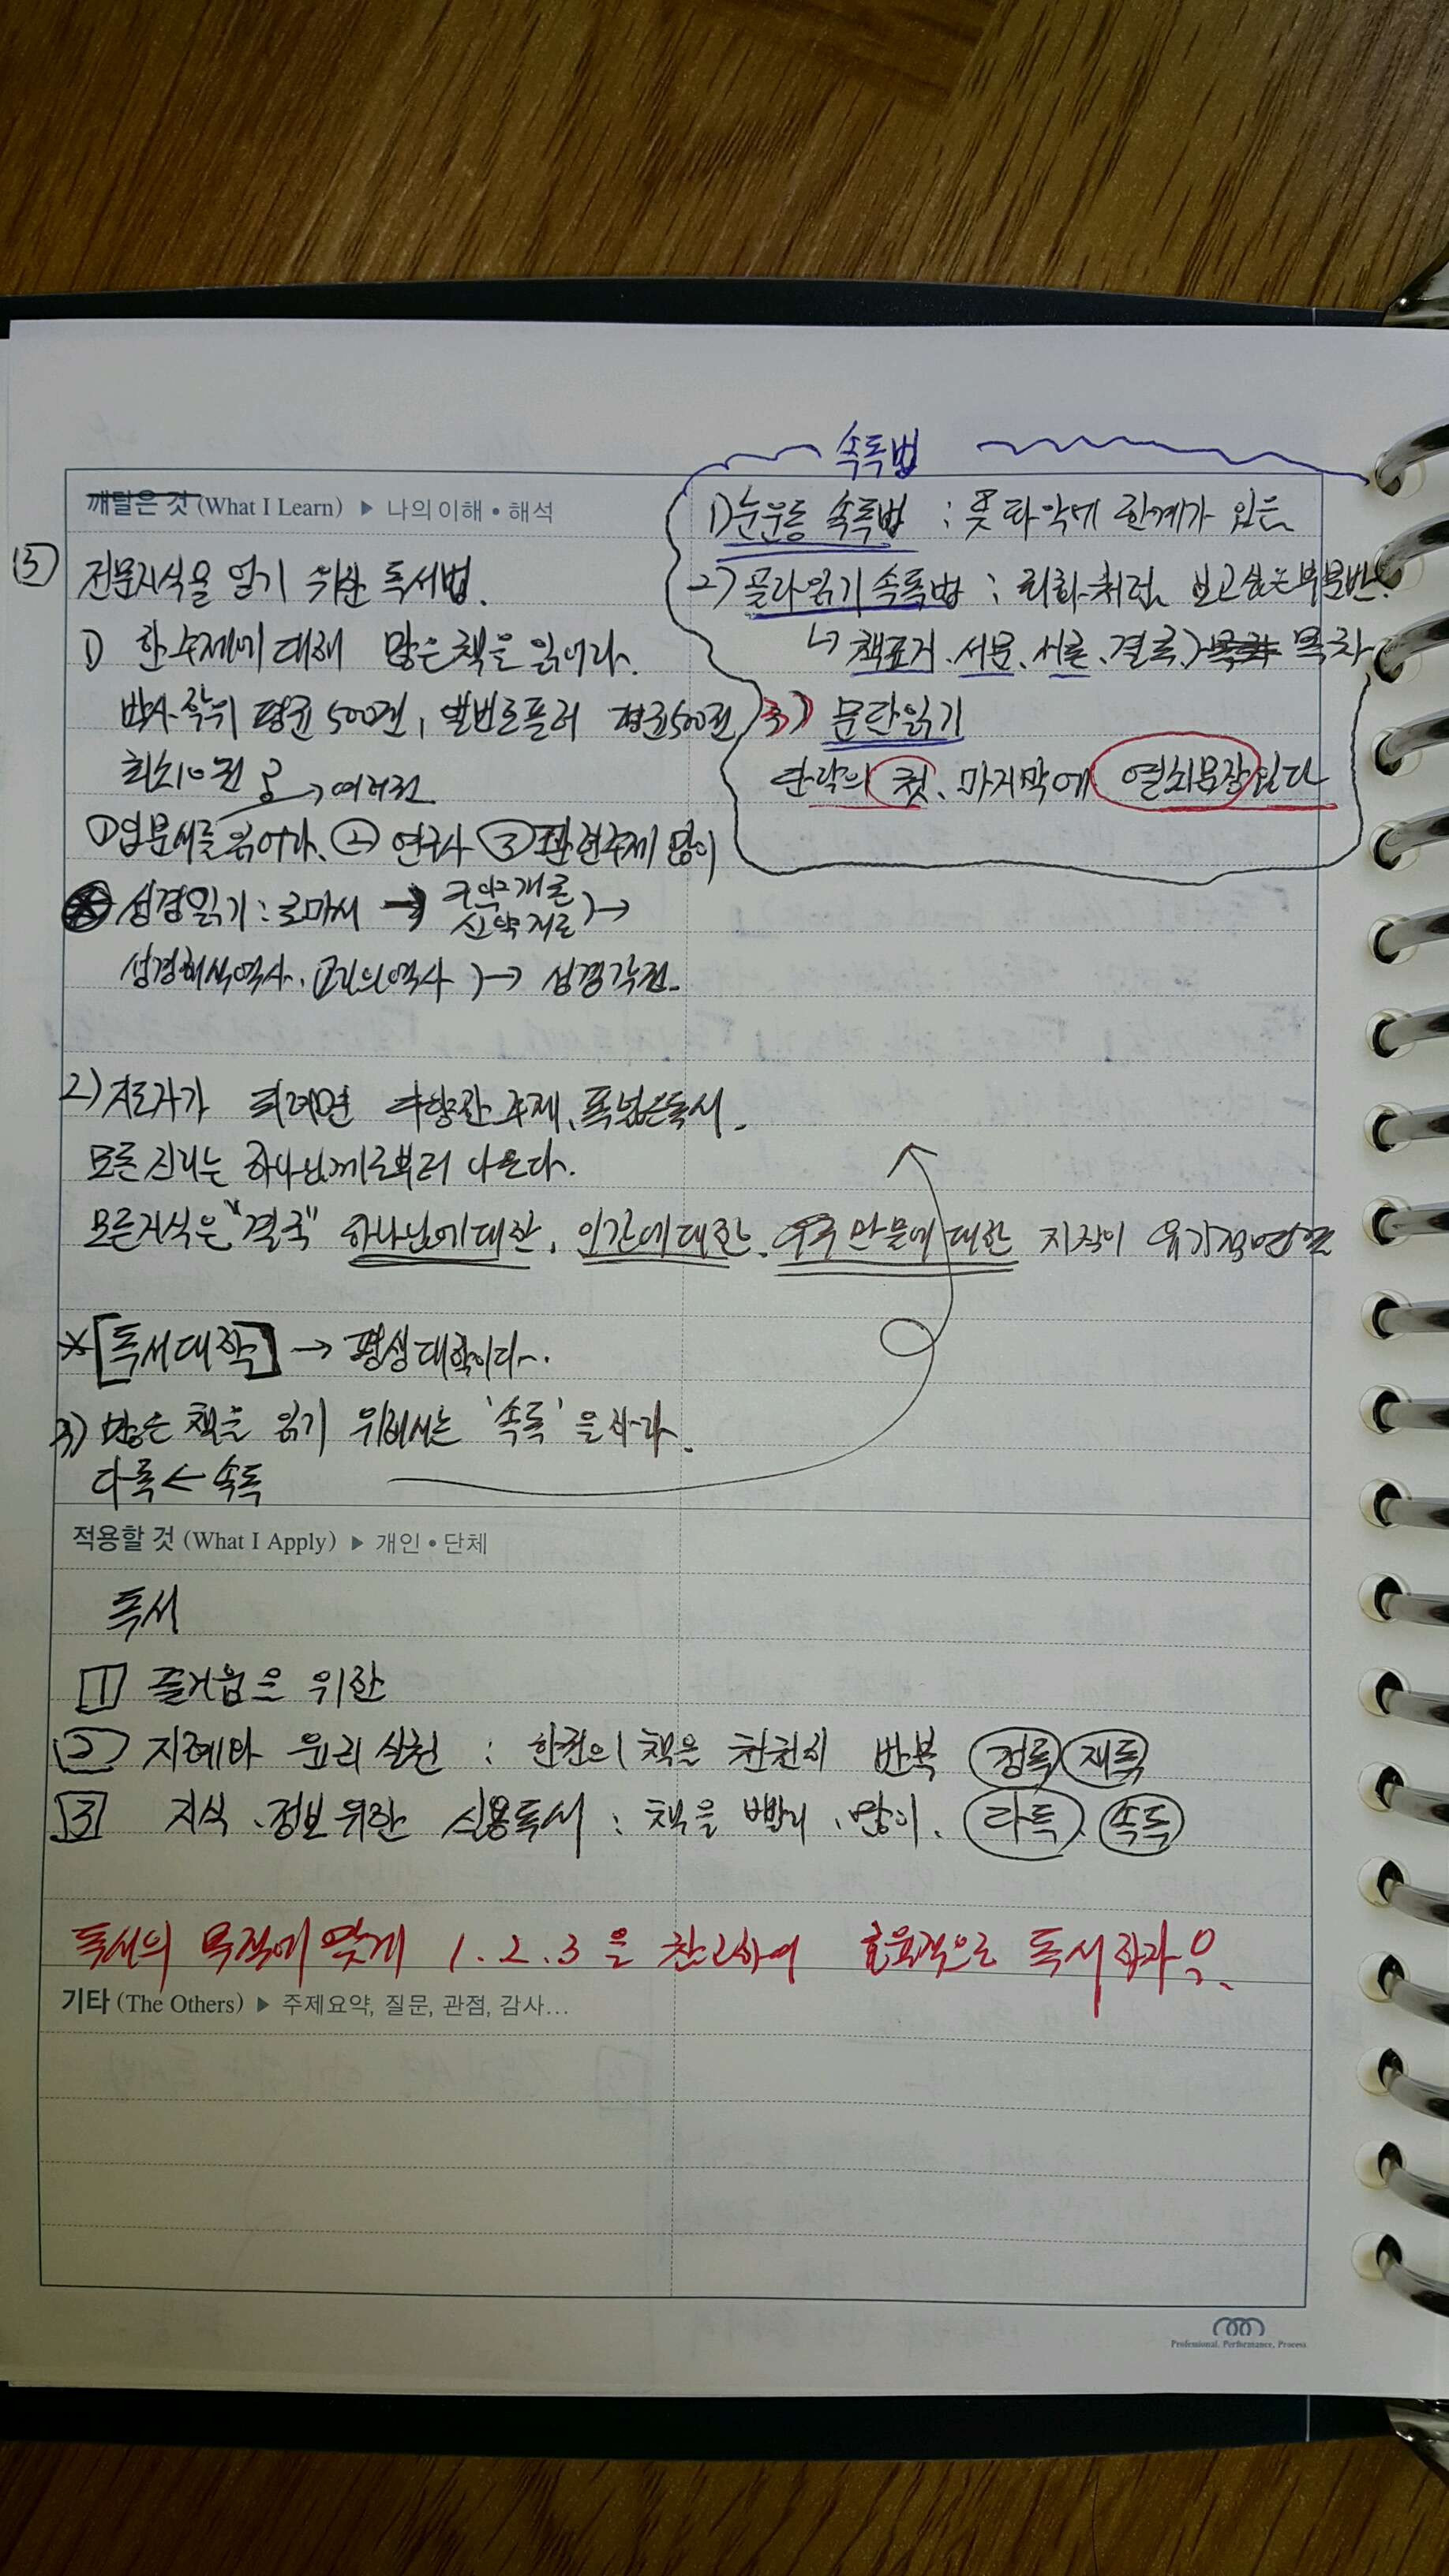 속독법
깨달은 것 (What I Learn) ▶ 나의 이해 • 해석
1) 눈운동 속독법 : 뜻 파악에 한계가 있음
⑤ 전문지식을 얻기 위한 독서법.
2) 골라읽기 속독법 : 회화처럼 보고싶은부분만!
↳ 책표지, 서문, 서론, 결론, 목차
1) 한 주제에 대해 많은 책을 읽어라.
박사학위 평균 500권, 앨빈토플러 평균 500권
3) 문단읽기
단락의 첫, 마지막에 열쇠문장있다
최소 10권 → 여러권
① 입문서를 읽어라. ② 연구사 ③ 관련주제 많이
성경읽기 : 로마서 → 구약개론 신약개론 ) →
성경해석역사, 교리의역사 ) → 성경각권.
2) 지도자가 되려면 다양한 주제, 폭넓은독서.
모든 진리는 하나님께로부터 나온다.
모든지식은 "결국" 하나님에대한, 인간에대한, 우주만물에 대한 지식이 유기적연결
* [독서대학] → 평생대학이다.
3) 많은 책을 읽기 위해서는 '속독'을 하라.
다독 ← 속독
적용할 것 (What I Apply) ▶ 개인 • 단체
독서
1 즐거움을 위한
2 지혜와 윤리 실천 : 한권의 책을 천천히 반복 정독 재독
3 지식, 정보위한 실용독서 : 책을 빨리, 많이. 다독, 속독
독서의 목적에 맞게 1. 2. 3 을 참고하여 효율적으로 독서하자
기타 (The Others) ▶ 주제요약, 질문, 관점, 감사...
Professional, Performance, Process